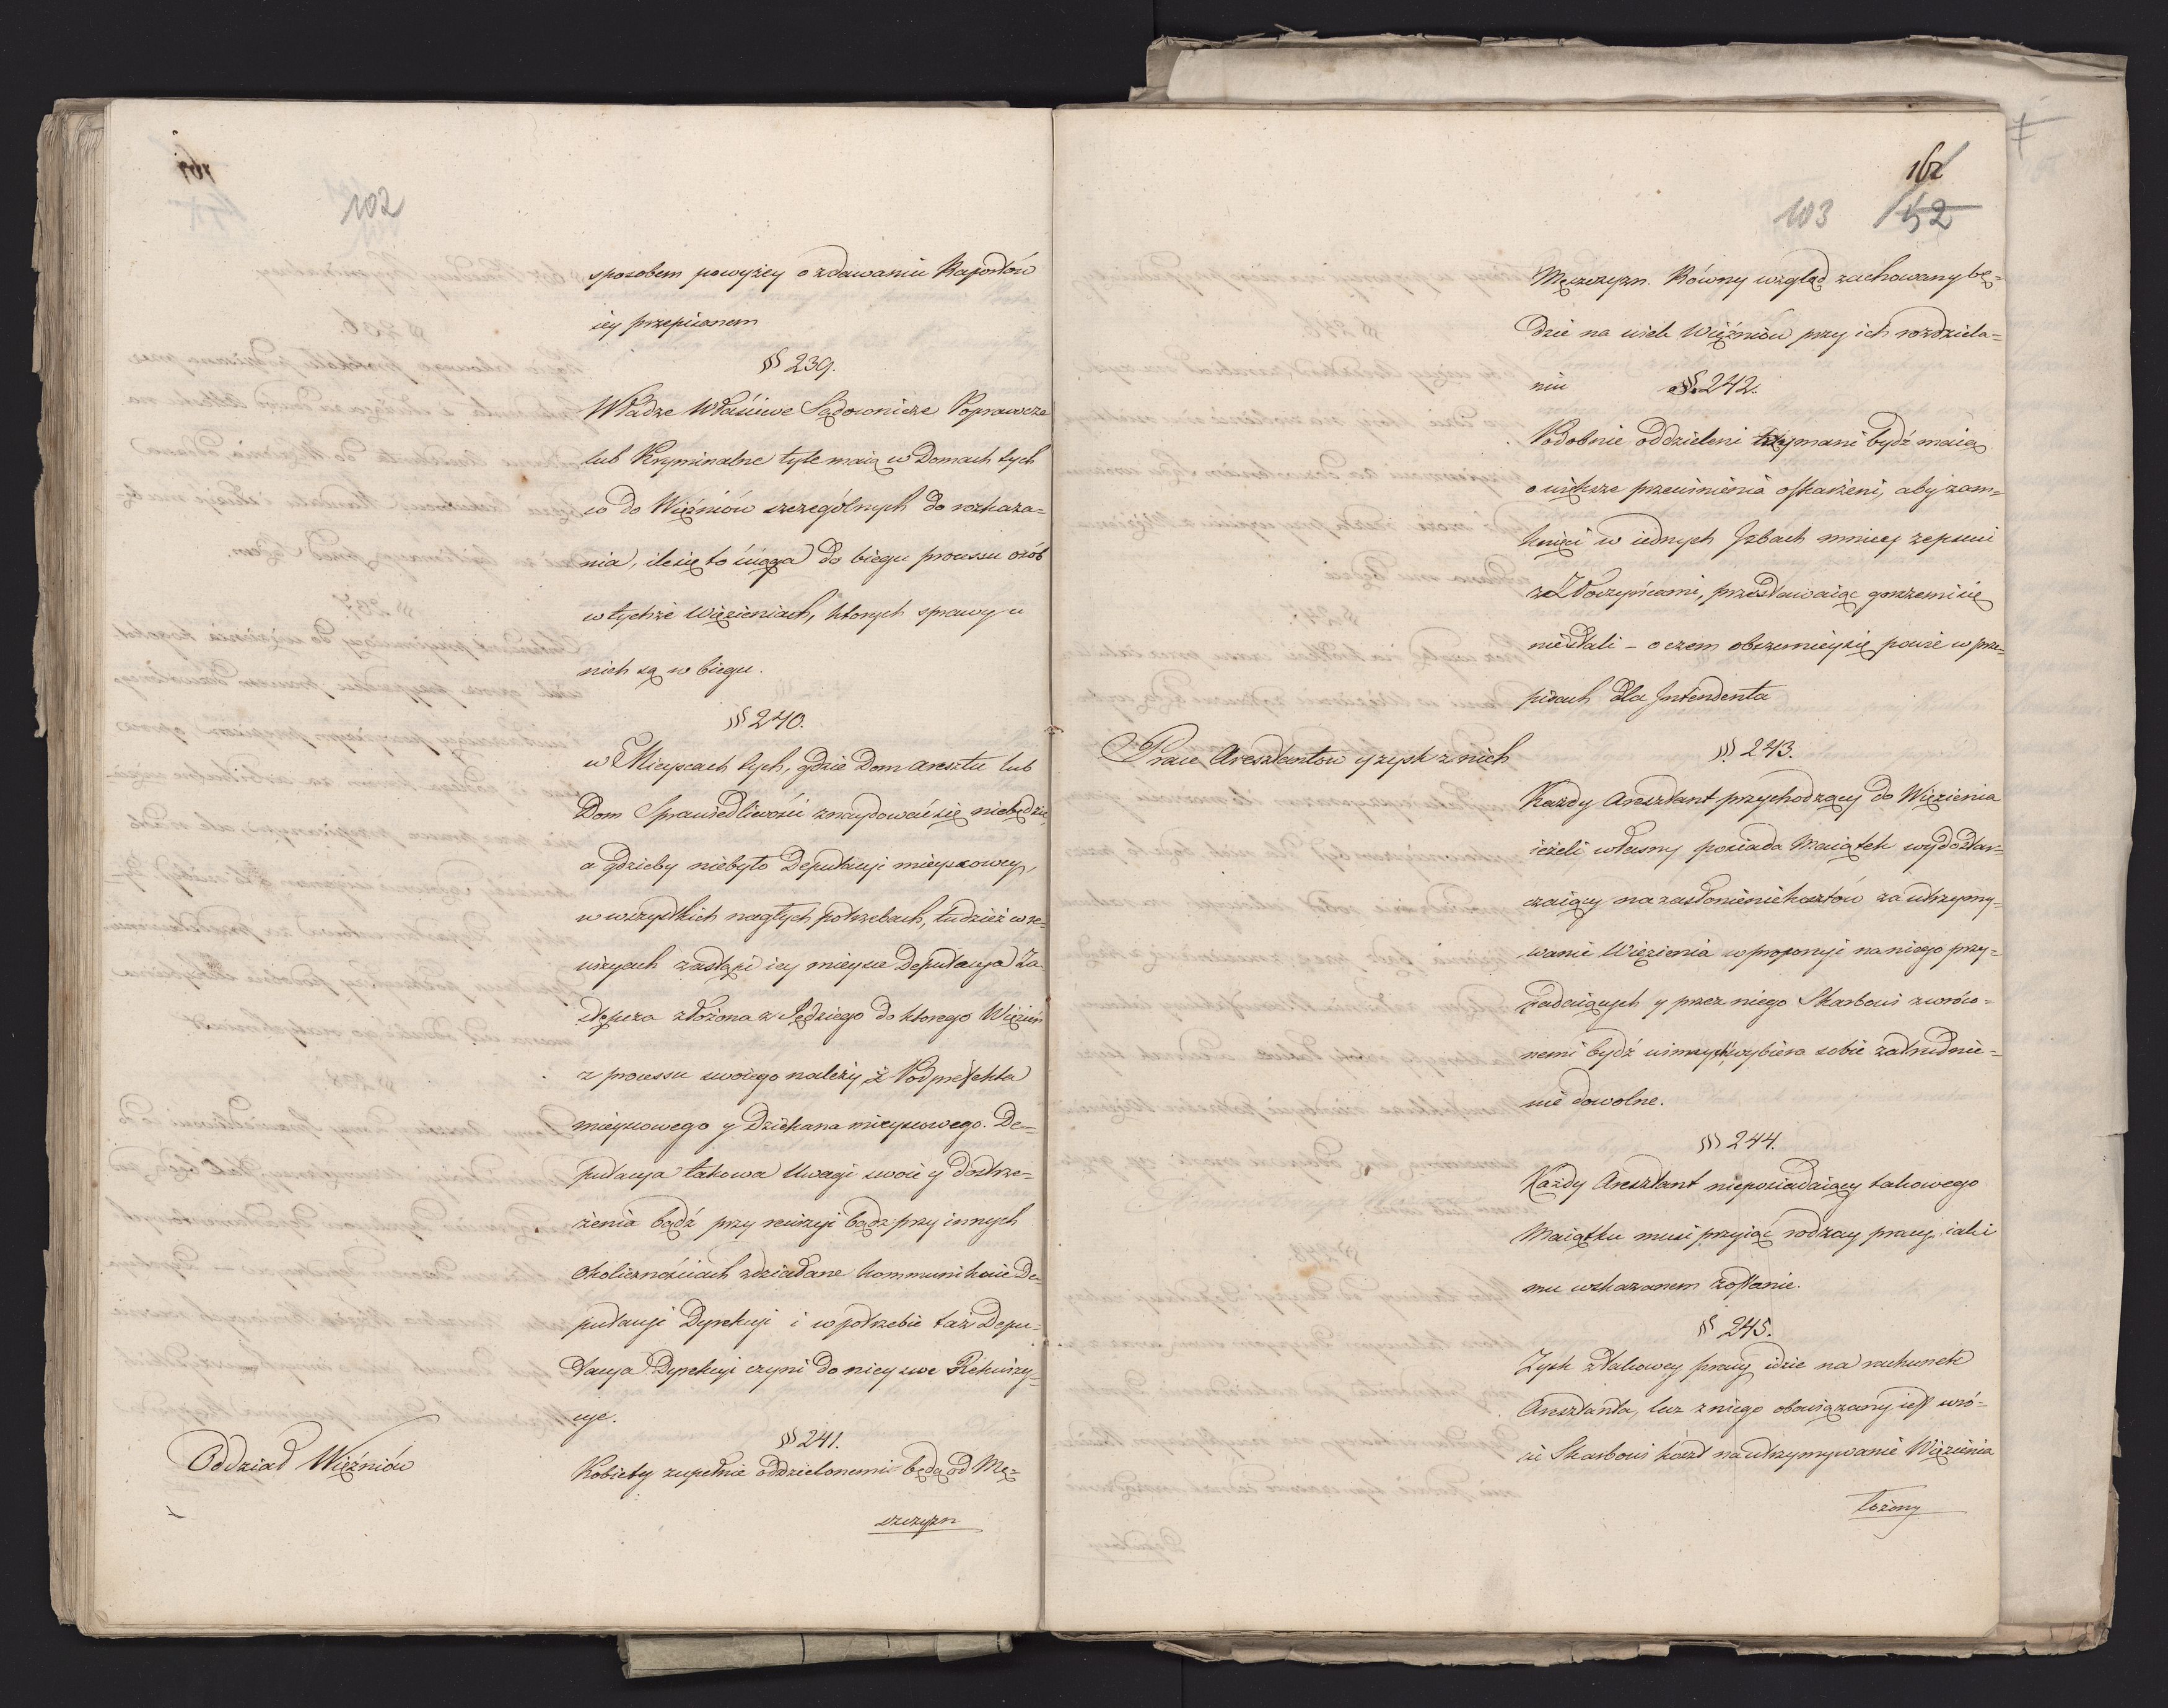 102
sposobem powyżey o zdawaniu Raportów
iey przepisanem
§§ 239.
Władze Właściwe Sądownicze Poprawcze
lub Kryminalne tyle maią w Domach tych
co do Więźniów szczególnych do rozkaza=
nia, ile się to ściąga do biegu processu osób
w tychże Więzieniach, ktorych sprawy u
nich są w biegu.
§§ 240.
w Mieyscach tych, gdzie Dom aresztu lub
Dom Sprawiedliwości znaydować się niebędzie,
a gdzieby niebyło Deputacyi mieyscowey,
w wszystkich nagłych potrzebach, tudzież w re=
wizyach zastąpi iey mieysce Deputacya Za=
stępcza złożona z Sędziego do ktorego Więzień
z processu swoiego należy z Podprefekta
mieyscowego y Dziekana mieyscowego. De=
putacya takowa Uwagi swoie y dostrze=
żenia bądź przy rewizyi bądz przy innych
okolicznościach zdziałane kommunikuie De=
putacyi Dyrekcyi i w potrzebie taż Depu=
tacya Dyrekcyi czyni do niey swe Rekwizy=
cye.
§§ 241.
Oddział Więźniów
Kobiety zupełnie oddzielonemi będą od Męż=
szczyzn
162
103 152
Męszczyzn. Równy wzgląd zachowany bę=
dzie na wiek Więźniów przy ich rozdziela=
niu §§. 242.
Podobnie oddzieleni trzymani bydź maią
o większe przewinienia oskarżeni, aby zam=
knięci w iednych Izbach mniey zepsuci
ze Złoczyńcami, przestawaiąc gorszemi się
niestali – o czem obszerniey się powie w prze=
pisach dla Intendenta
Prace Aresztantow y zysk z nich
§§ 243.
Każdy Aresztant przychodzący do Więzienia
ieżeli własny posiada Maiątek wydostar=
czaiący na zasłonienie kosztów za utrzymy=
wanie Więzienia w proporcyi na niego przy=
padaiących y przez niego Skarbowi zwróco=
nemi bydź winnych, wybiera sobie zatrudnie=
nie dowolne.
§§ 244.
Każdy Aresztant nieposiadaiący takowego
Maiątku musi przyiąć rodzay pracy, iaki
mu wskazanem zostanie.
§§ 245.
Zysk z takowey pracy idzie na rachunek
Aresztanta, lecz z niego obowiązany iest wró=
cić Skarbowi koszt na utrzymywanie Więzienia
łożony